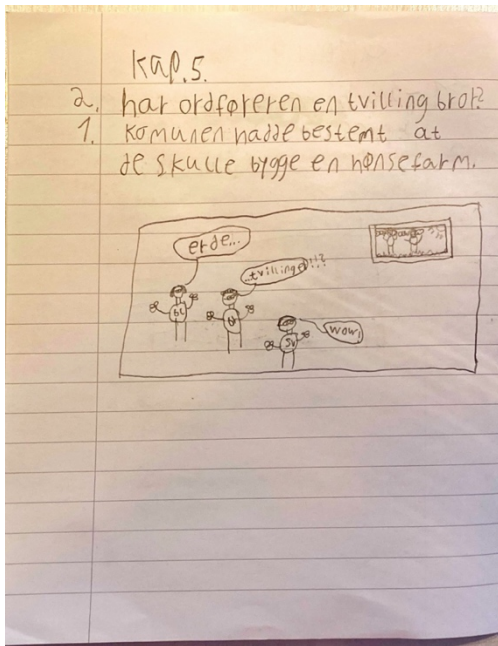 Kap.5.
2. har ordføreren en tvilling bror?
1. Komunen hadde bestemt at
de skulle bygge en hønsefarm.
er de...
...tvillinger!!?
wow!
BL
SV